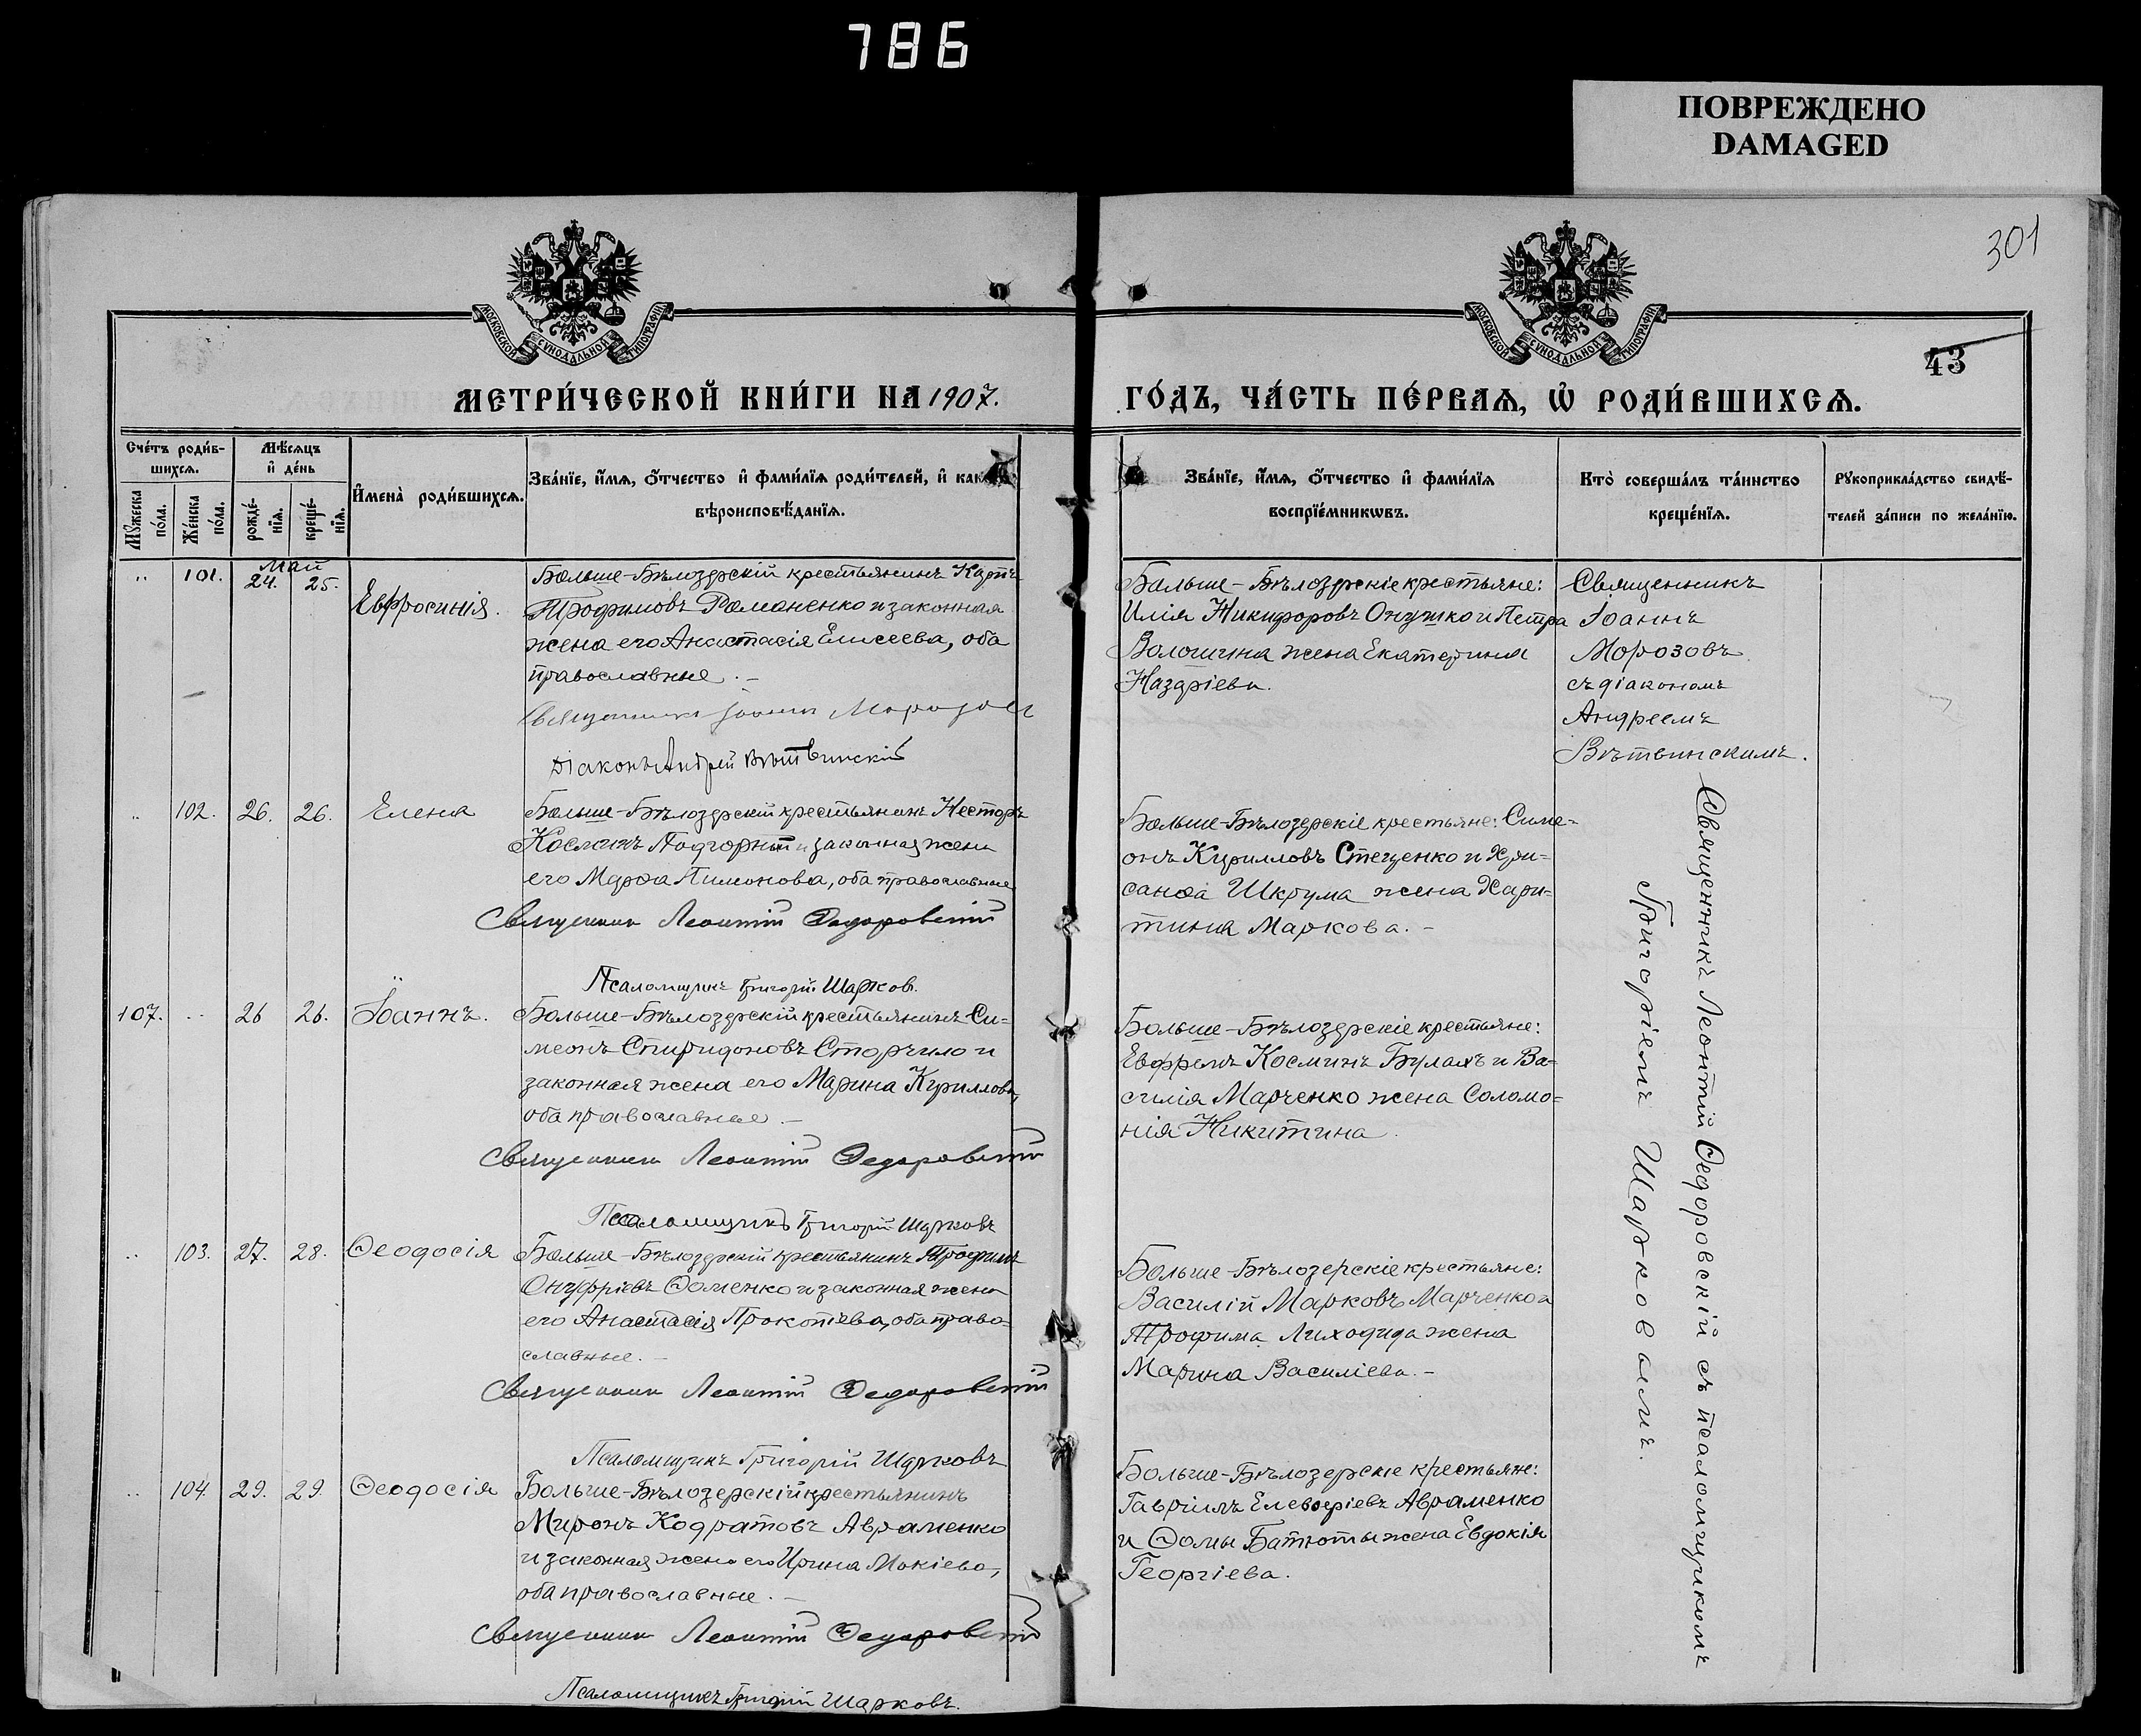 786
ПОВРЕЖДЕНО
DAMAGED
301
МОСКОВСКОЙ СѴНОДАЛЬНОЙ ТИПОГРАФІИ
МОСКОВСКОЙ СѴНОДАЛЬНОЙ ТИПОГРАФІИ
43
МЕТРИ́ЧЕСКОЙ КНИ́ГИ НА 1907.
ГО́ДЪ, ЧА́СТЬ ПЕ́РВАѦ, Ѽ РОДИ́ВШИХСѦ.
Сче́тъ роди́в-
шихсѧ.
Мꙋжеска
по́ла.
Же́нска
по́ла.
Мѣ́сѧцъ
и҆ де́нь
рожде́-
нїѧ.
креще́-
нїѧ.
И҆мена̀ роди́вшихсѧ.
Зва́нїе, и҆́мѧ, ѻ҆́тчество и҆ фами́лїѧ роди́телей, и҆ как
вѣроисповѣ́данїѧ.
Зва́нїе, и҆́мѧ, ѻ҆́тчество и҆ фами́лїѧ
воспрїе́мникѡвъ.
Кто̀ соверша́лъ та́инство
креще́нїѧ.
Рꙋкоприкла́дство свидѣ́-
телей за́писи по жела́нїю.
Май
101. 24. 25.
Евфросинія.
Больше-Бѣлозерскій крестьянинъ Карпъ
Трофимовъ Романенко и законная
жена его Анастасія Елисеева, оба
православные. –
Священникъ Іоаннъ Морозовъ
Діаконъ Андрей Вѣтвинскій
Больше-Бѣлозерскіе крестьяне:
Илія Никифоровъ Онушко и Петра
Волошина жена Екатерина
Назаріева.
Священникъ
Іоаннъ
Морозовъ
съ діакономъ
Андреемъ
Вѣтвинскимъ.
102. 26. 26. Елена
Больше-Бѣлозерскій крестьянинъ Несторъ
Косминъ Подгорный и законная жена
его Марѳа Пимонова, оба православные
Священникъ Леонтій Ѳедоровскій
Псаломщикъ Григорій Шарков.
Больше-Бѣлозерскіе крестьяне: Симе-
онъ Кирилловъ Стеценко и Хри-
санѳа Шкрума жена Хари-
тина Маркова. –
107. 26 26. Іоаннъ.
Больше-Бѣлозерскій крестьянинъ Си-
меонъ Спиридоновъ Сторчило и
законная жена его Марина Кириллова,
оба православные. –
Священникъ Леонтій Ѳедоровскій
Псаломщикъ Григорій Шарковъ
Больше-Бѣлозерскіе крестьяне:
Евфремъ Косминъ Булахъ и Ва-
силія Марченко жена Соломо-
нія Никитина.
103. 27. 28. Ѳеодосія
Больше-Бѣлозерскій крестьянинъ Трофимъ
Онуфріевъ Ѳоменко и законная жена
его Анастасія Прокопіева, оба право-
славные. –
Священникъ Леонтій Ѳедоровскій
Псаломщикъ Григорій Шарковъ
Больше-Бѣлозерскіе крестьяне:
Василій Марковъ Марченко и
Трофима Лиходида жена
Марина Василіева. –
104. 29. 29. Ѳеодосія
Больше-Бѣлозерскій крестьянинъ
Миронъ Кодратовъ Авраменко
и законная жена его Ирина Мокіева,
оба православные. –
Священникъ Леонтій Ѳедоровскій
Псаломщикъ Григорій Шарковъ.
Больше-Бѣлозерскіе крестьяне:
Гавріилъ Елевѳеріевъ Авраменко
и Ѳомы Батюты жена Евдокія
Георгіева.
Священникъ Леонтій Ѳеодоровскій съ псаломщикомъ
Григоріемъ Шарковымъ.